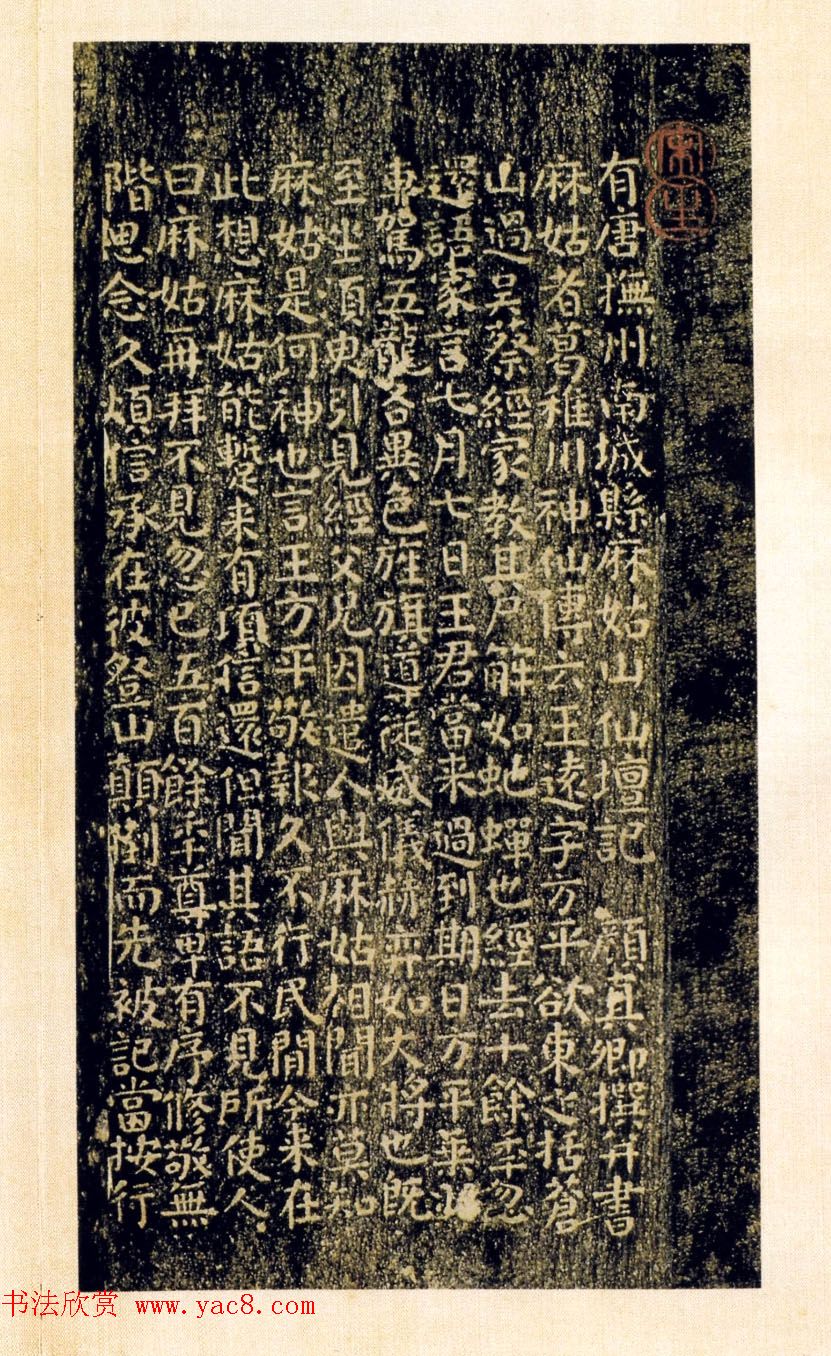 有唐撫州南城縣麻姑山仙壇記 顏真卿撰并書
麻姑者葛稚川神仙傳云王遠字方平欲東之括蒼
山過吴蔡經家教其尸解如虵蟬也經去十餘年忽
還語家言七月七日王君當来過到期日方平乗羽
車駕五龍各異色旌旗導從威儀赫弈如大將也既
至坐須臾引見經父兄因遣人與麻姑相聞亦莫知
麻姑是何神也言王方平敬報久不行民間今来在
此想麻姑能蹔来有頃信還但聞其語不見所使人
曰麻姑再拜不見忽已五百餘年尊卑有序修敬無
階思念久煩信承在彼登山顛倒而先被記當按行
書法欣赏 www.yac8.com